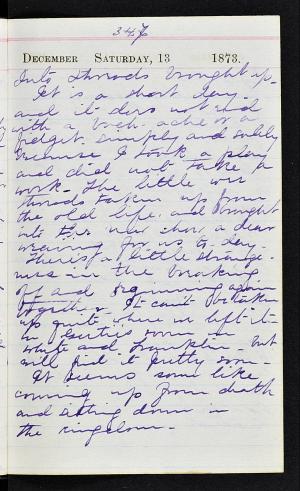 347
DECEMBER SATURDAY, 13 1873.
Into threads brought up.
It is a short day.
and it does not end
with a back-ache or a
fidget, simply and solely
because I took a play
and did not take a
work. The little
threads taken up from
the old life, and brought
into this new show a dear
meaning for us to-day.
There is a little strange-
ness in the breaking
off and beginning again
together. It can't be taken
up quite where we left it
in room in
white and. but
will find it pretty soon.
It seems some like
coming up from death
and sitting down in
the